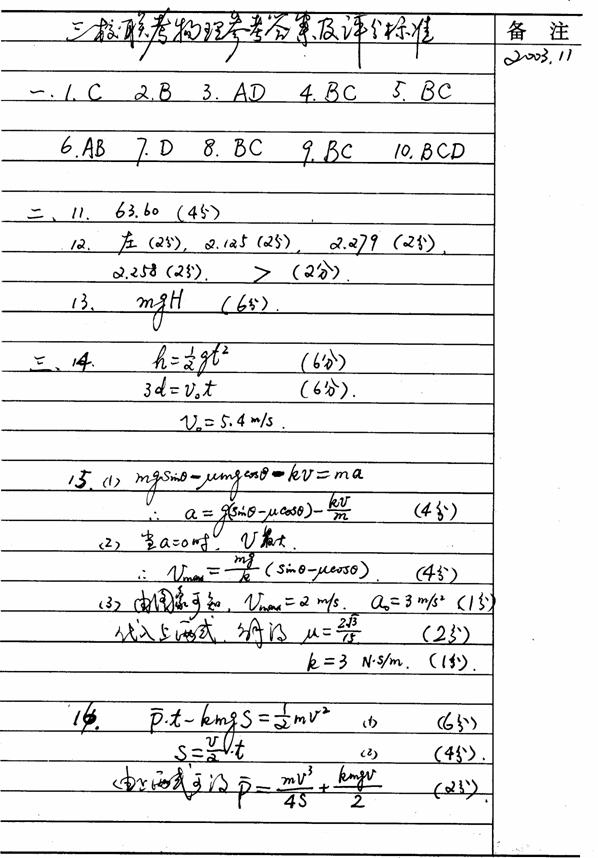 三校联考物理参考答案及评分标准
备 注
2003.11
一. 1. C 2. B 3. AD 4. BC 5. BC
6. AB 7. D 8. BC 9. BC 10. BCD
二、11. 63.60 (4分)
12. 左 (2分), 2.125 (2分), 2.279 (2分),
2.258 (2分). > (2分).
13. mgH (6分).
三、14. h=½gt² (6分)
3d=v₀t (6分).
V₀=5.4 m/s.
15. (1) mgsinθ-μmgcosθ-kv=ma
∴ a=g(sinθ-μcosθ)-kv/m (4分)
(2) 当a=0时, V最大.
∴ Vmax=mg/k (sinθ-μcosθ). (4分)
(3) 由图象可知, Vmax=2 m/s. a₀=3 m/s² (1分)
代入上两式, 解得 μ=2√3/15 (2分)
k=3 N·s/m. (1分).
16. P̄·t-kmgS=½mv² (1) (6分)
S=v/2·t (2) (4分).
由上两式可得 P̄=mv³/4S+kmgv/2 (2分).